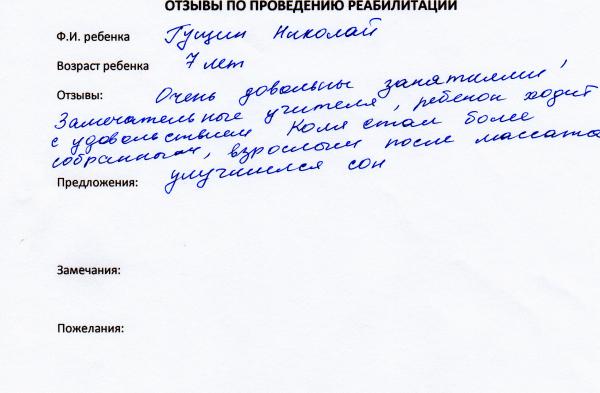 ОТЗЫВЫ ПО ПРОВЕДЕНИЮ РЕАБИЛИТАЦИИ
Ф.И. ребенка Гущин Николай
Возраст ребенка 7 лет
Отзывы: Очень довольны занятиями,
Замечательные учителя, ребенок ходит
с удовольствием Коля стал более
собранным, взрослым после массажа
Предложения: улучшился сон
Замечания:
Пожелания: